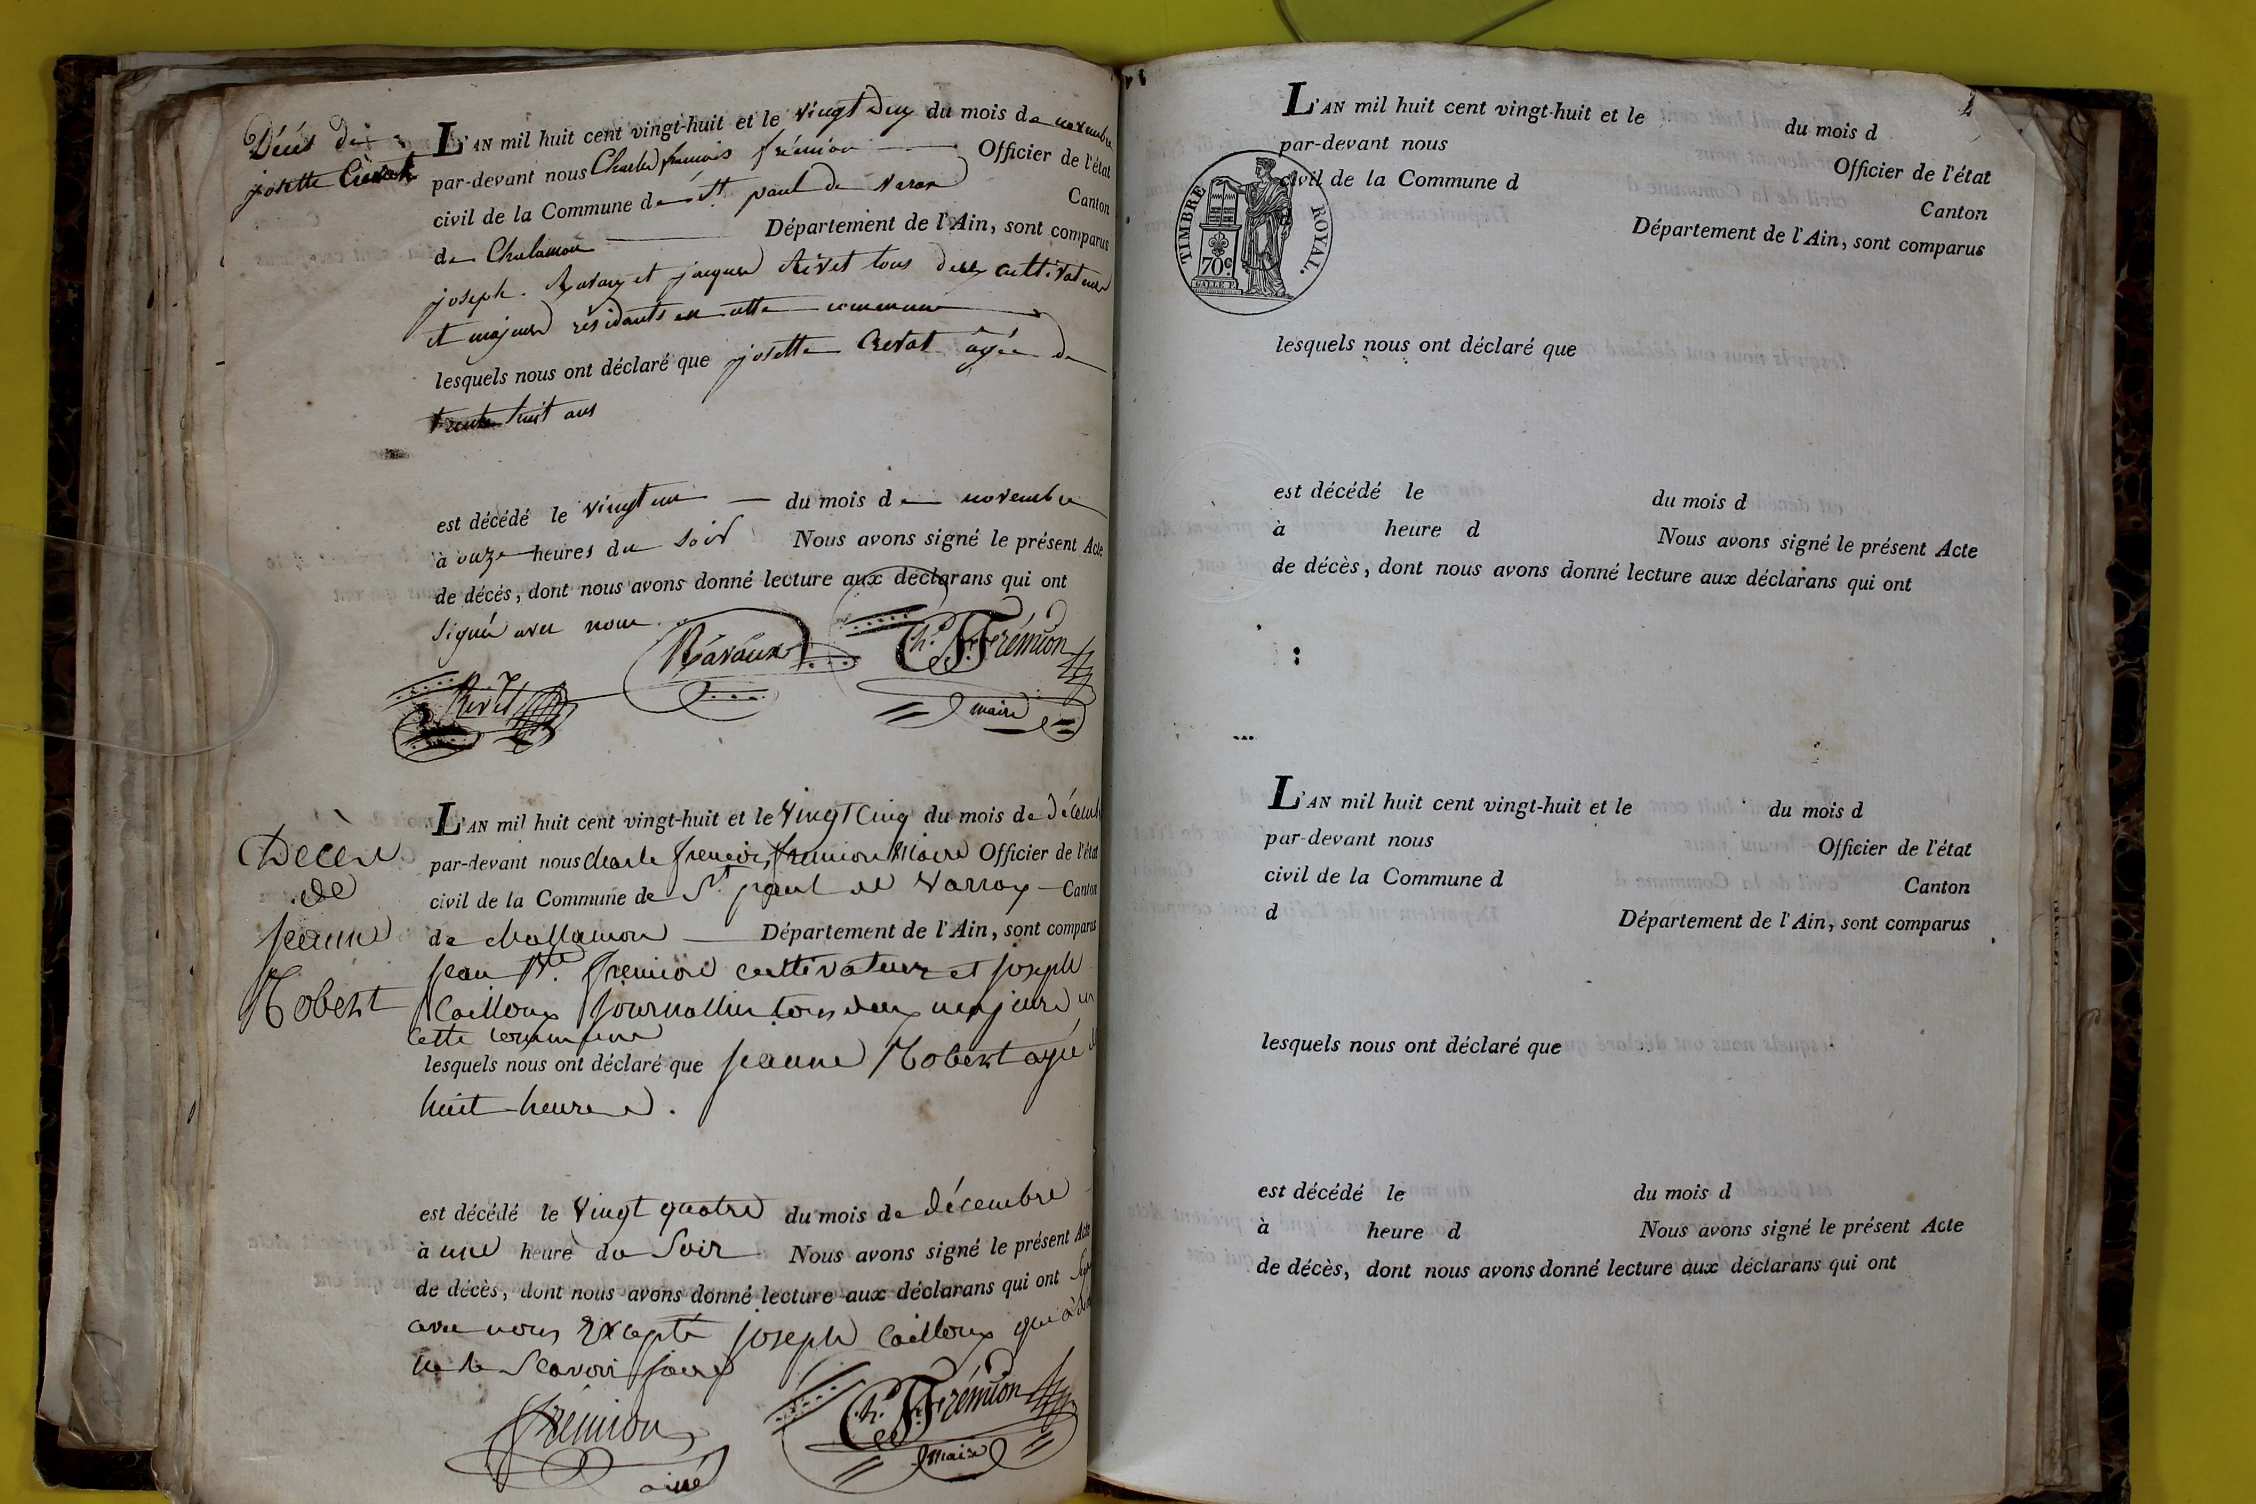 Décès de
josette Crevat
L'AN mil huit cent vingt-huit et le vingt deux du mois de novembre
par-devant nous Charles françois frémion Officier de l'état
civil de la Commune de St paul de Varax Canton
de Chalamon Département de l'Ain, sont comparus
joseph Ravaux et jacques Rivet tous deux cultivateurs
et majeurs résidants en cette commune
lesquels nous ont déclaré que josette Crevat âgée de
trente huit ans
est décédé le vingt un du mois de novembre
à onze heures du soir Nous avons signé le présent Acte
de décés, dont nous avons donné lecture aux déclarans qui ont
signé avec nous.
Ravaux Ch. F. Frémion
Rivet maire
Décès
de
jeanne
Robert
L'AN mil huit cent vingt-huit et le vingt cinq du mois de décemb
par-devant nous Charle françois fremion Maire Officier de l'état
civil de la Commune de St paul de Varrax Canton
de challamon Département de l'Ain, sont comparus
jean Bte. fremion cultivateur et joseph
Cailloux journallier tous deux majeurs en
cette commune
lesquels nous ont déclaré que jeanne Robert agée de
huit heures.
est décédé le vingt quatre du mois de décembre
à une heure du soir Nous avons signé le présent Acte
de décès, dont nous avons donné lecture aux déclarans qui ont
avec nous Excepté joseph Cailloux qui a
ne le Scavoir faire
fremion Ch. F. Frémion
ainé maire
L'AN mil huit cent vingt-huit et le du mois d
par-devant nous Officier de l'état
civil de la Commune d Canton
Département de l'Ain, sont comparus
TIMBRE ROYAL.
70c
lesquels nous ont déclaré que
est décédé le du mois d
à heure d Nous avons signé le présent Acte
de décès, dont nous avons donné lecture aux déclarans qui ont
L'AN mil huit cent vingt-huit et le du mois d
par-devant nous Officier de l'état
civil de la Commune d Canton
d Département de l'Ain, sont comparus
lesquels nous ont déclaré que
est décédé le du mois d
à heure d Nous avons signé le présent Acte
de décès, dont nous avons donné lecture aux déclarans qui ont